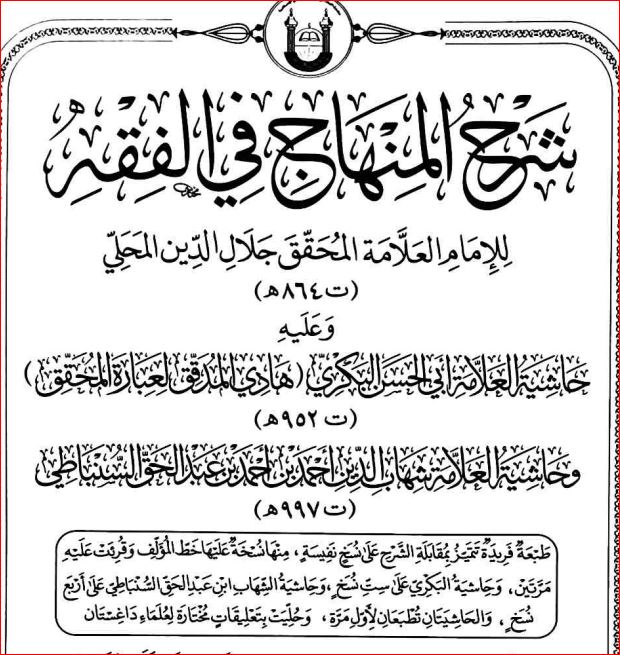 شَرْحُ المِنْهَاجِ فِي الفِقْهِ
لِلإِمَامِ العَلَّامَة المُحَقّق جَلَال الدِّين المَحَلِّي
(ت ٨٦٤ هـ)
وَعَلَيهِ
حَاشِيَة العَلَّامَة أَبِي الحَسَن البَكْرِي (هَادِي المُدَقّق لِعِبَارَة المُحَقّق)
(ت ٩٥٢ هـ)
وحَاشِيَة العَلَّامَة شِهَاب الدِّين أَحْمَد بْن أَحْمَد بْن عَبْد الحَقّ السُّنْبَاطِي
(ت ٩٩٧ هـ)
طَبْعَة فَرِيدَة تَتَمَيَّزُ بِمُقَابَلَة الشَّرْح عَلَى نُسَخٍ نَفِيسَةٍ، مِنْهَا نُسْخَة عَلَيْهَا خَطّ المُؤَلِّف وَقُرِئَتْ عَلَيْهِ
مَرَّتَيْن، وَحَاشِيَة البَكْرِي عَلَى سِتّ نُسَخٍ، وَحَاشِيَة الشِّهَاب ابْن عَبْد الحَق السُّنْبَاطِي عَلَى أَرْبَع
نُسَخٍ، وَالحَاشِيَتَان تُطْبَعَان لِأَوَّل مَرَّة، وَحُلِّيَتْ بِتَعْلِيقَاتٍ مُخْتَارَة لِعُلَمَاء دَاغِسْتَان